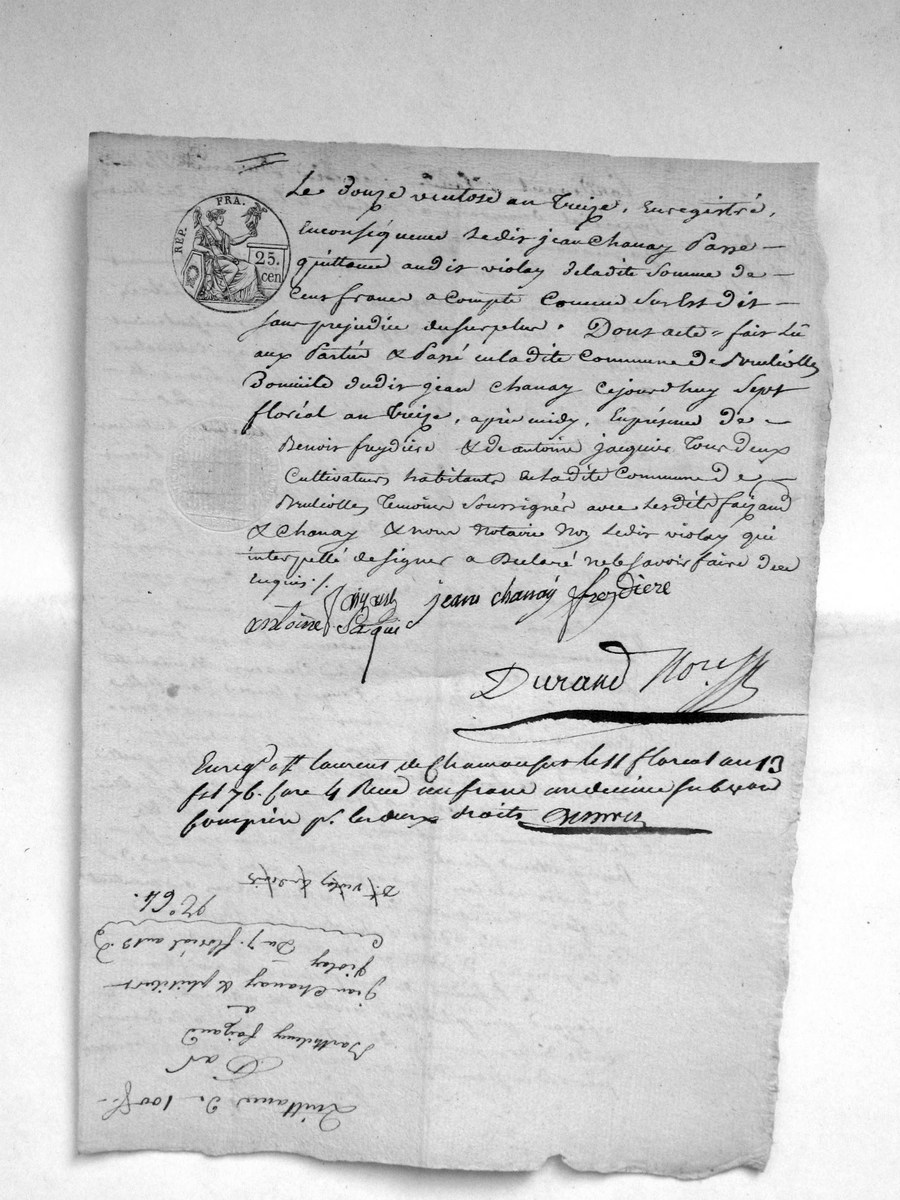 REP. FRA.
25. cen
Le Douze ventose an Treize, Enregistré,
Enconséquence Ledit jean Chanay Passe –
quittance audit violay deladite Somme de –
Cent francs acompte Comme Sus Est dit –
Sans prejudice du Surplus. Dont acte = fait Lu
aux Parties & Passé en ladite Commune de Brullioles
Domicile dudit jean Chanay Cejourdhuy Sept
floréal an Treize, après midy, En présence de –
Benoit freydière & de antoine jacquier Tous deux
Cultivateurs habitants de ladite Commune de
Brullioles Temoins Soussignés avec Lesdits faizand
& Chanay & nous Notaire Non Ledit violay qui
interpellé designer a Declaré ne le Savoir faire de ce
Enquis ./.
jean chanay freydiere
antoine
Durand Nore
Enregé à St laurent de Chamousset le 11 floreal an 13
fol 76. Case 4 Recu un franc un decime Subvon
Comprise pr. les deux droits
violay
No 64.
Du 7. floréal an 13
jean Chanay & philibert violay
a
Barthelemy faizand
Par
Quittance De 100 f. –